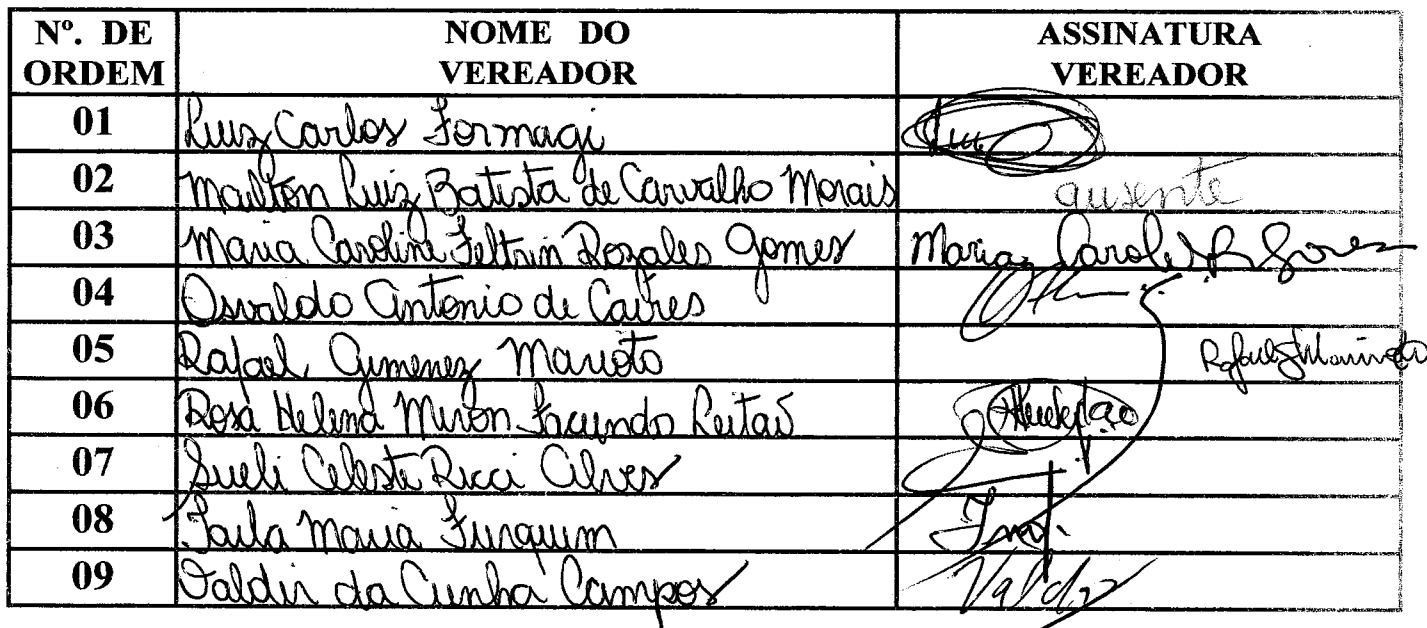 Nº. DE ORDEM NOME DO VEREADOR ASSINATURA VEREADOR
01 Luiz Carlos Formagi
02 Mailton Luiz Batista de Carvalho Morais ausente
03 Maria Caroline Feltrin Rozales Gomes Maria
04 Osvaldo Antonio de Caires
05 Rafael Gimenez Marioto
06 Rosa Helena Miron Facundo Leitão
07 Sueli Celeste Ricci Alves
08 Maria Furquim
09 Valdir da Cunha Campos Valdir